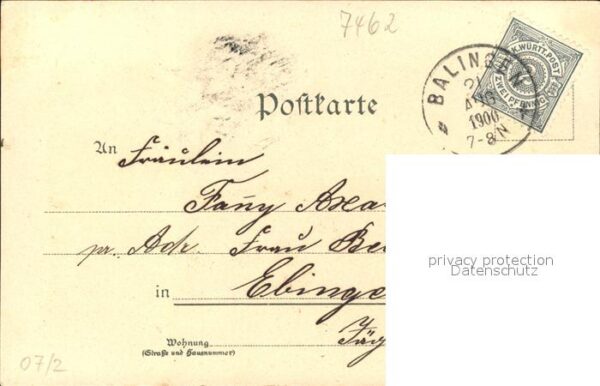 7462
K.WÜRTT.POST
ZWEI PFENNIG
BALINGEN
21
AUG
1900
7-8 N
Postkarte
An Fräulein
Fany
pr. Adr. Frau
in Ebinge
Wohnung
(Straße und Hausnummer)
07/2
privacy protection
Datenschutz